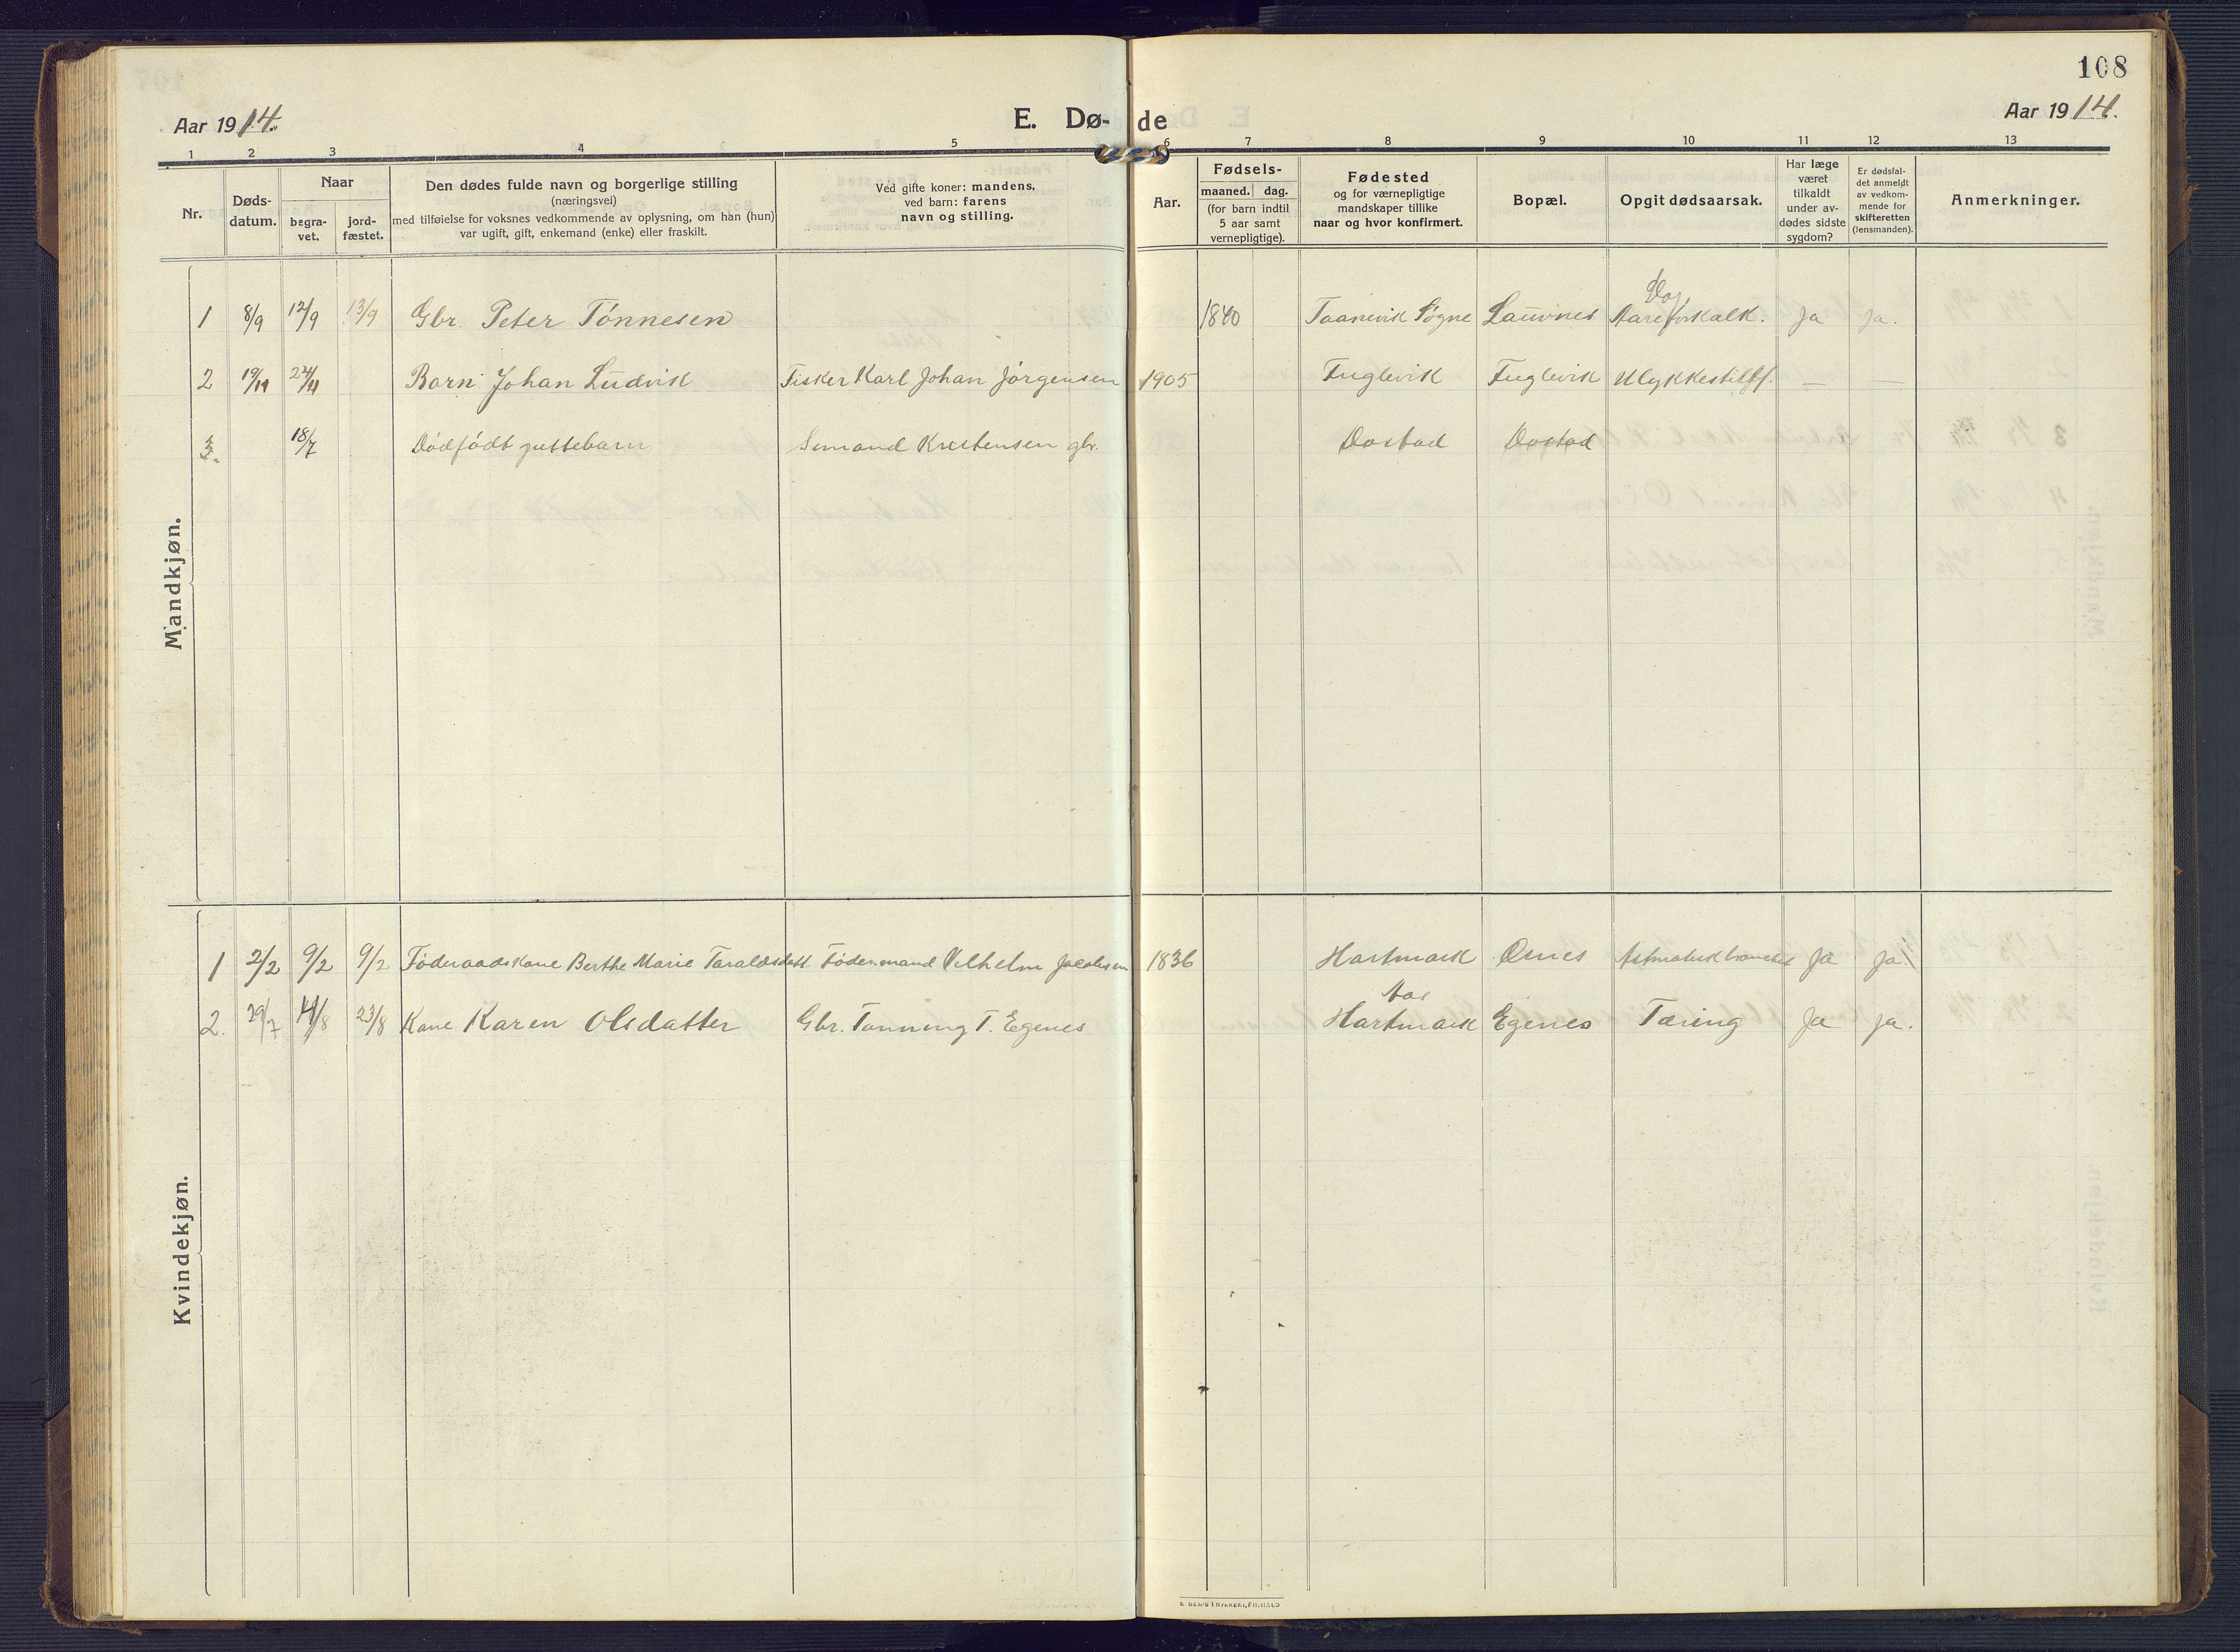 108
Aar 1914.
E. Dø- de
Aar 1914.
1 2 3 4 5 6 7 8 9 10 11 12 13
Nr.
Døds-
datum.
Naar
begra-
vet.
jord-
fæstet.
Den dødes fulde navn og borgerlige stilling
(næringsvei)
med tilføielse for voksnes vedkommende av oplysning, om han (hun)
var ugift, gift, enkemand (enke) eller fraskilt.
Ved gifte koner: mandens,
ved barn: farens
navn og stilling.
Aar.
Fødsels-
maaned. dag.
(for barn indtil
5 aar samt
vernepligtige).
Fødested
og for værnepligtige
mandskaper tillike
naar og hvor konfirmert.
Bopæl.
Opgit dødsaarsak.
Har læge
været
tilkaldt
under av-
dødes sidste
sygdom?
Er dødsfal-
det anmeldt
av vedkom-
mende for
skifteretten
(lensmanden).
Anmerkninger.
Mandkjøn.
1 8/9 12/9 13/9 Gbr. Peter Tönnesen 1840 Taanevik Søgne Lauvnes Aareforkalk. Ja Ja.
2 19/11 24/11 Barn Johan Ludvik Fisker Karl Johan Jörgensen 1905 Fuglevik Fuglevik Ulykkestilf. — —
3. 18/7 Dödfödt guttebarn Kristensen gbr.
Kvindekjøn.
1 2/2 9/2 9/2 Föderaadskone Berthe Marie Taraldsdatt. Födermand Vilhelm Jacobsen 1836 Hartmark Osnes Ja Ja.
Aas
2. 29/7 14/8 23/8 Kone Karen Olsdatter Gbr. Tønning T. Egenes Hartmark Egenes Tæring Ja Ja.